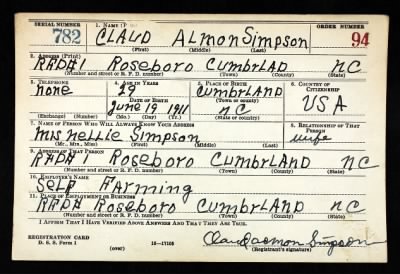 SERIAL NUMBER 1. NAME (Print) ORDER NUMBER
782 CLAUD ALMON SIMPSON 94
(First) (Middle) (Last)
2. ADDRESS (Print)
RRD#1 Roseboro CUMBRLAD NC
(Number and street or R. F. D. number) (Town) (County) (State)
3. TELEPHONE 4. AGE IN YEARS 5. PLACE OF BIRTH 6. COUNTRY OF CITIZENSHIP
none 29 CUMBRLAND USA
(Town or county)
DATE OF BIRTH
June 19 1911 NC
(Exchange) (Number) (Mo.) (Day) (Yr.) (State or country)
7. NAME OF PERSON WHO WILL ALWAYS KNOW YOUR ADDRESS 8. RELATIONSHIP OF THAT PERSON
MRS Nellie Simpson wife
(Mr., Mrs., Miss) (First) (Middle) (Last)
9. ADDRESS OF THAT PERSON
Roseboro CUMBRLAND NC
(Number and street or R. F. D. number) (Town) (County) (State)
10. EMPLOYER'S NAME
SELF FARMING
11. PLACE OF EMPLOYMENT OR BUSINESS
Roseboro CUMBRLAND NC
(Number and street or R. F. D. number) (Town) (County) (State)
I AFFIRM THAT I HAVE VERIFIED ABOVE ANSWERS AND THAT THEY ARE TRUE.
REGISTRATION CARD
D. S. S. Form 1 (over) 16—17105 Claud almon Simpson
(Registrant's signature)